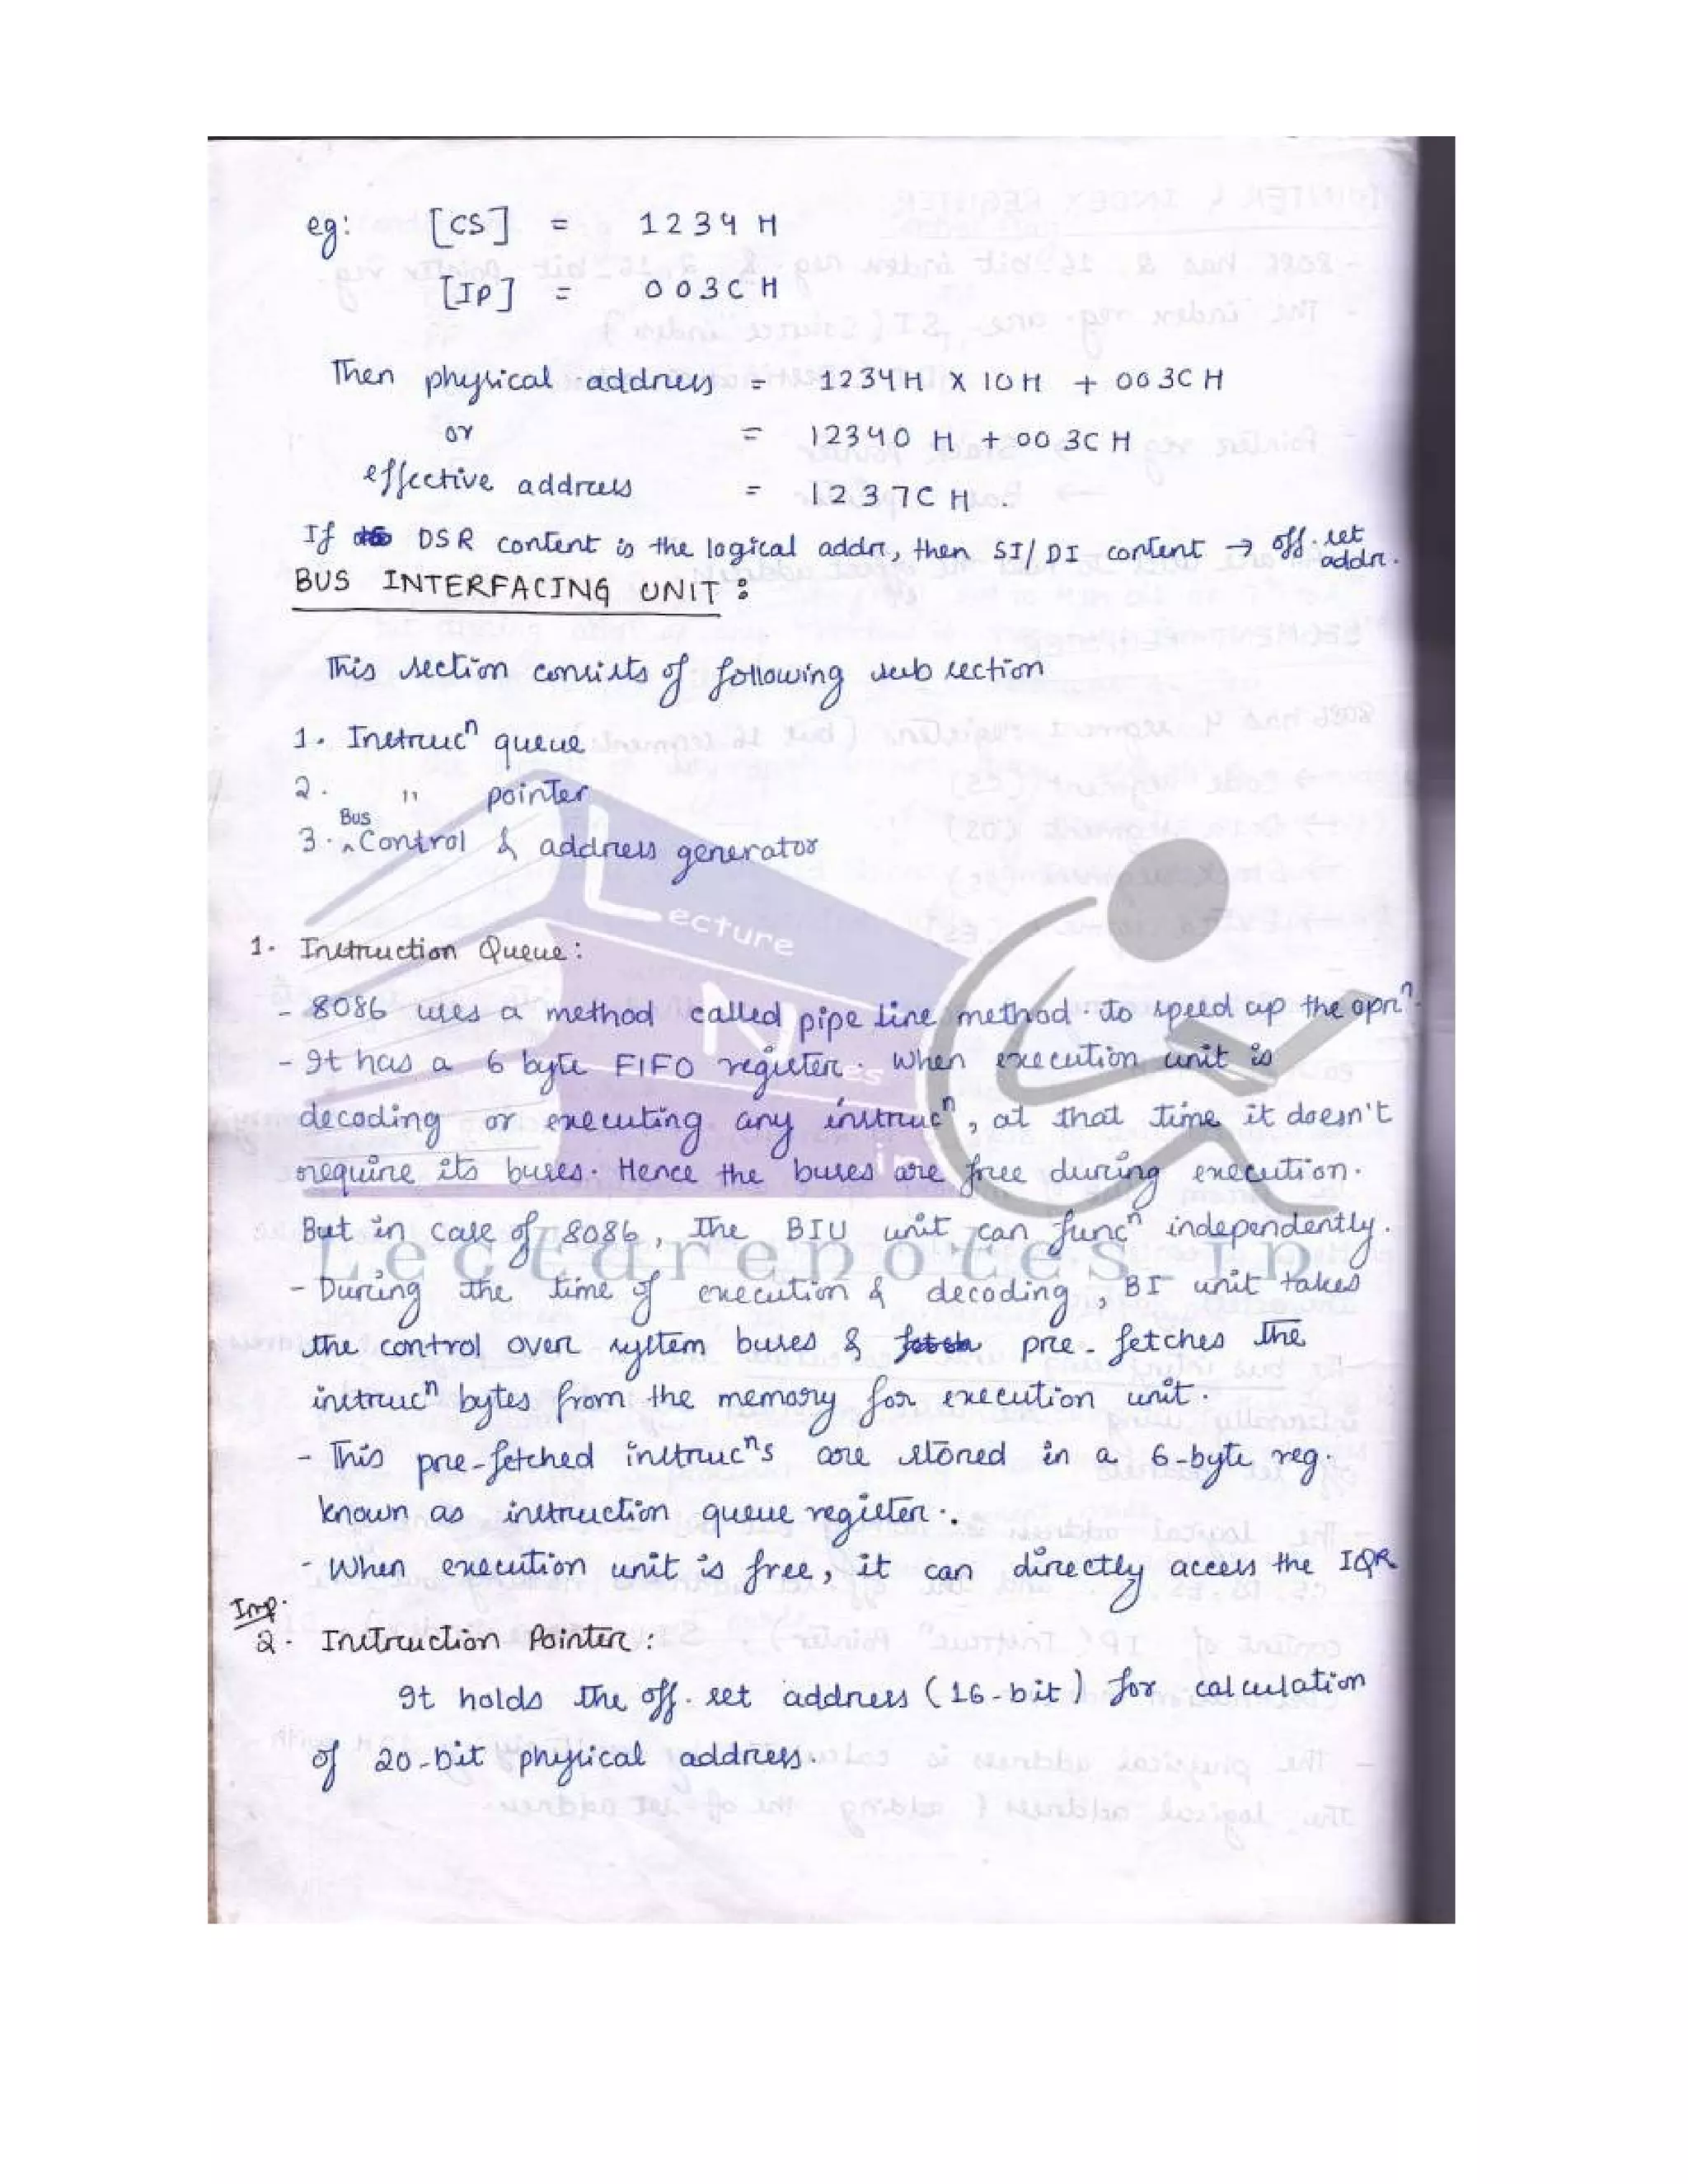 eg: [CS] = 1234 H
[IP] = 003C H
Then physical address = 1234H X 10H + 003C H
or = 12340 H + 003C H
effective address = 1237C H.
If DSR content is the logical addr, then SI/DI content → off.set addr.
BUS INTERFACING UNIT :
This section consists of following sub section
1. Instrucⁿ queue
2. " pointer
3. Bus Control & address generator
1. Instruction Queue :
- 8086 uses a method called pipe line method. to speed up the oprⁿ.
- It has a 6 byte FIFO register. When execution unit is
decoding or executing any instrucⁿ, at that time it doesn't
require its buses. Hence the buses are free during execution.
But in case of 8086, The BIU unit can funcⁿ independently.
- During the time of execution & decoding, BI unit takes
the control over system buses & pre-fetches the
instrucⁿ bytes from the memory for execution unit.
- This pre-fetched instrucⁿs are stored in a 6-byte reg.
known as instruction queue register..
- When execution unit is free, it can directly access the IQR
Imp.
2. Instruction Pointer :
It holds the off.set address (16-bit) for calculation
of 20-bit physical address.
Lecture
Notes
in
Lecturenotes.in